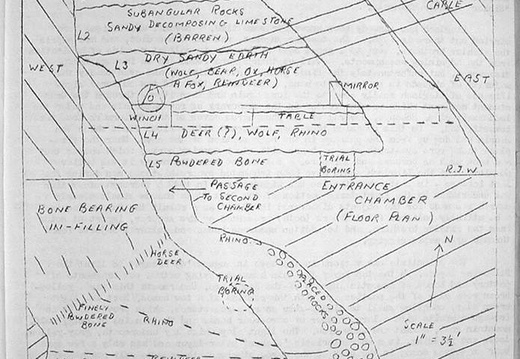 SUBANGULAR ROCKS
SANDY DECOMPOSING LIMESTONE
(BARREN)
CABLE
L2
WEST
L3 DRY SANDY EARTH
(WOLF, BEAR, OX, HORSE
A FOX, REINDEER)
EAST
MIRROR
WINCH
TABLE
L4 DEER (?), WOLF, RHINO
L5 POWDERED BONE
TRIAL
BORING
R.J.W
PASSAGE
TO SECOND
CHAMBER
ENTRANCE
CHAMBER
(FLOOR PLAN)
BONE BEARING
IN-FILLING
RHINO
N
HORSE
DEER
TRIAL
BORING
PLACED
ROCKS
FINELY
POWDERED
BONE
RHINO
SCALE
1" = 3½'